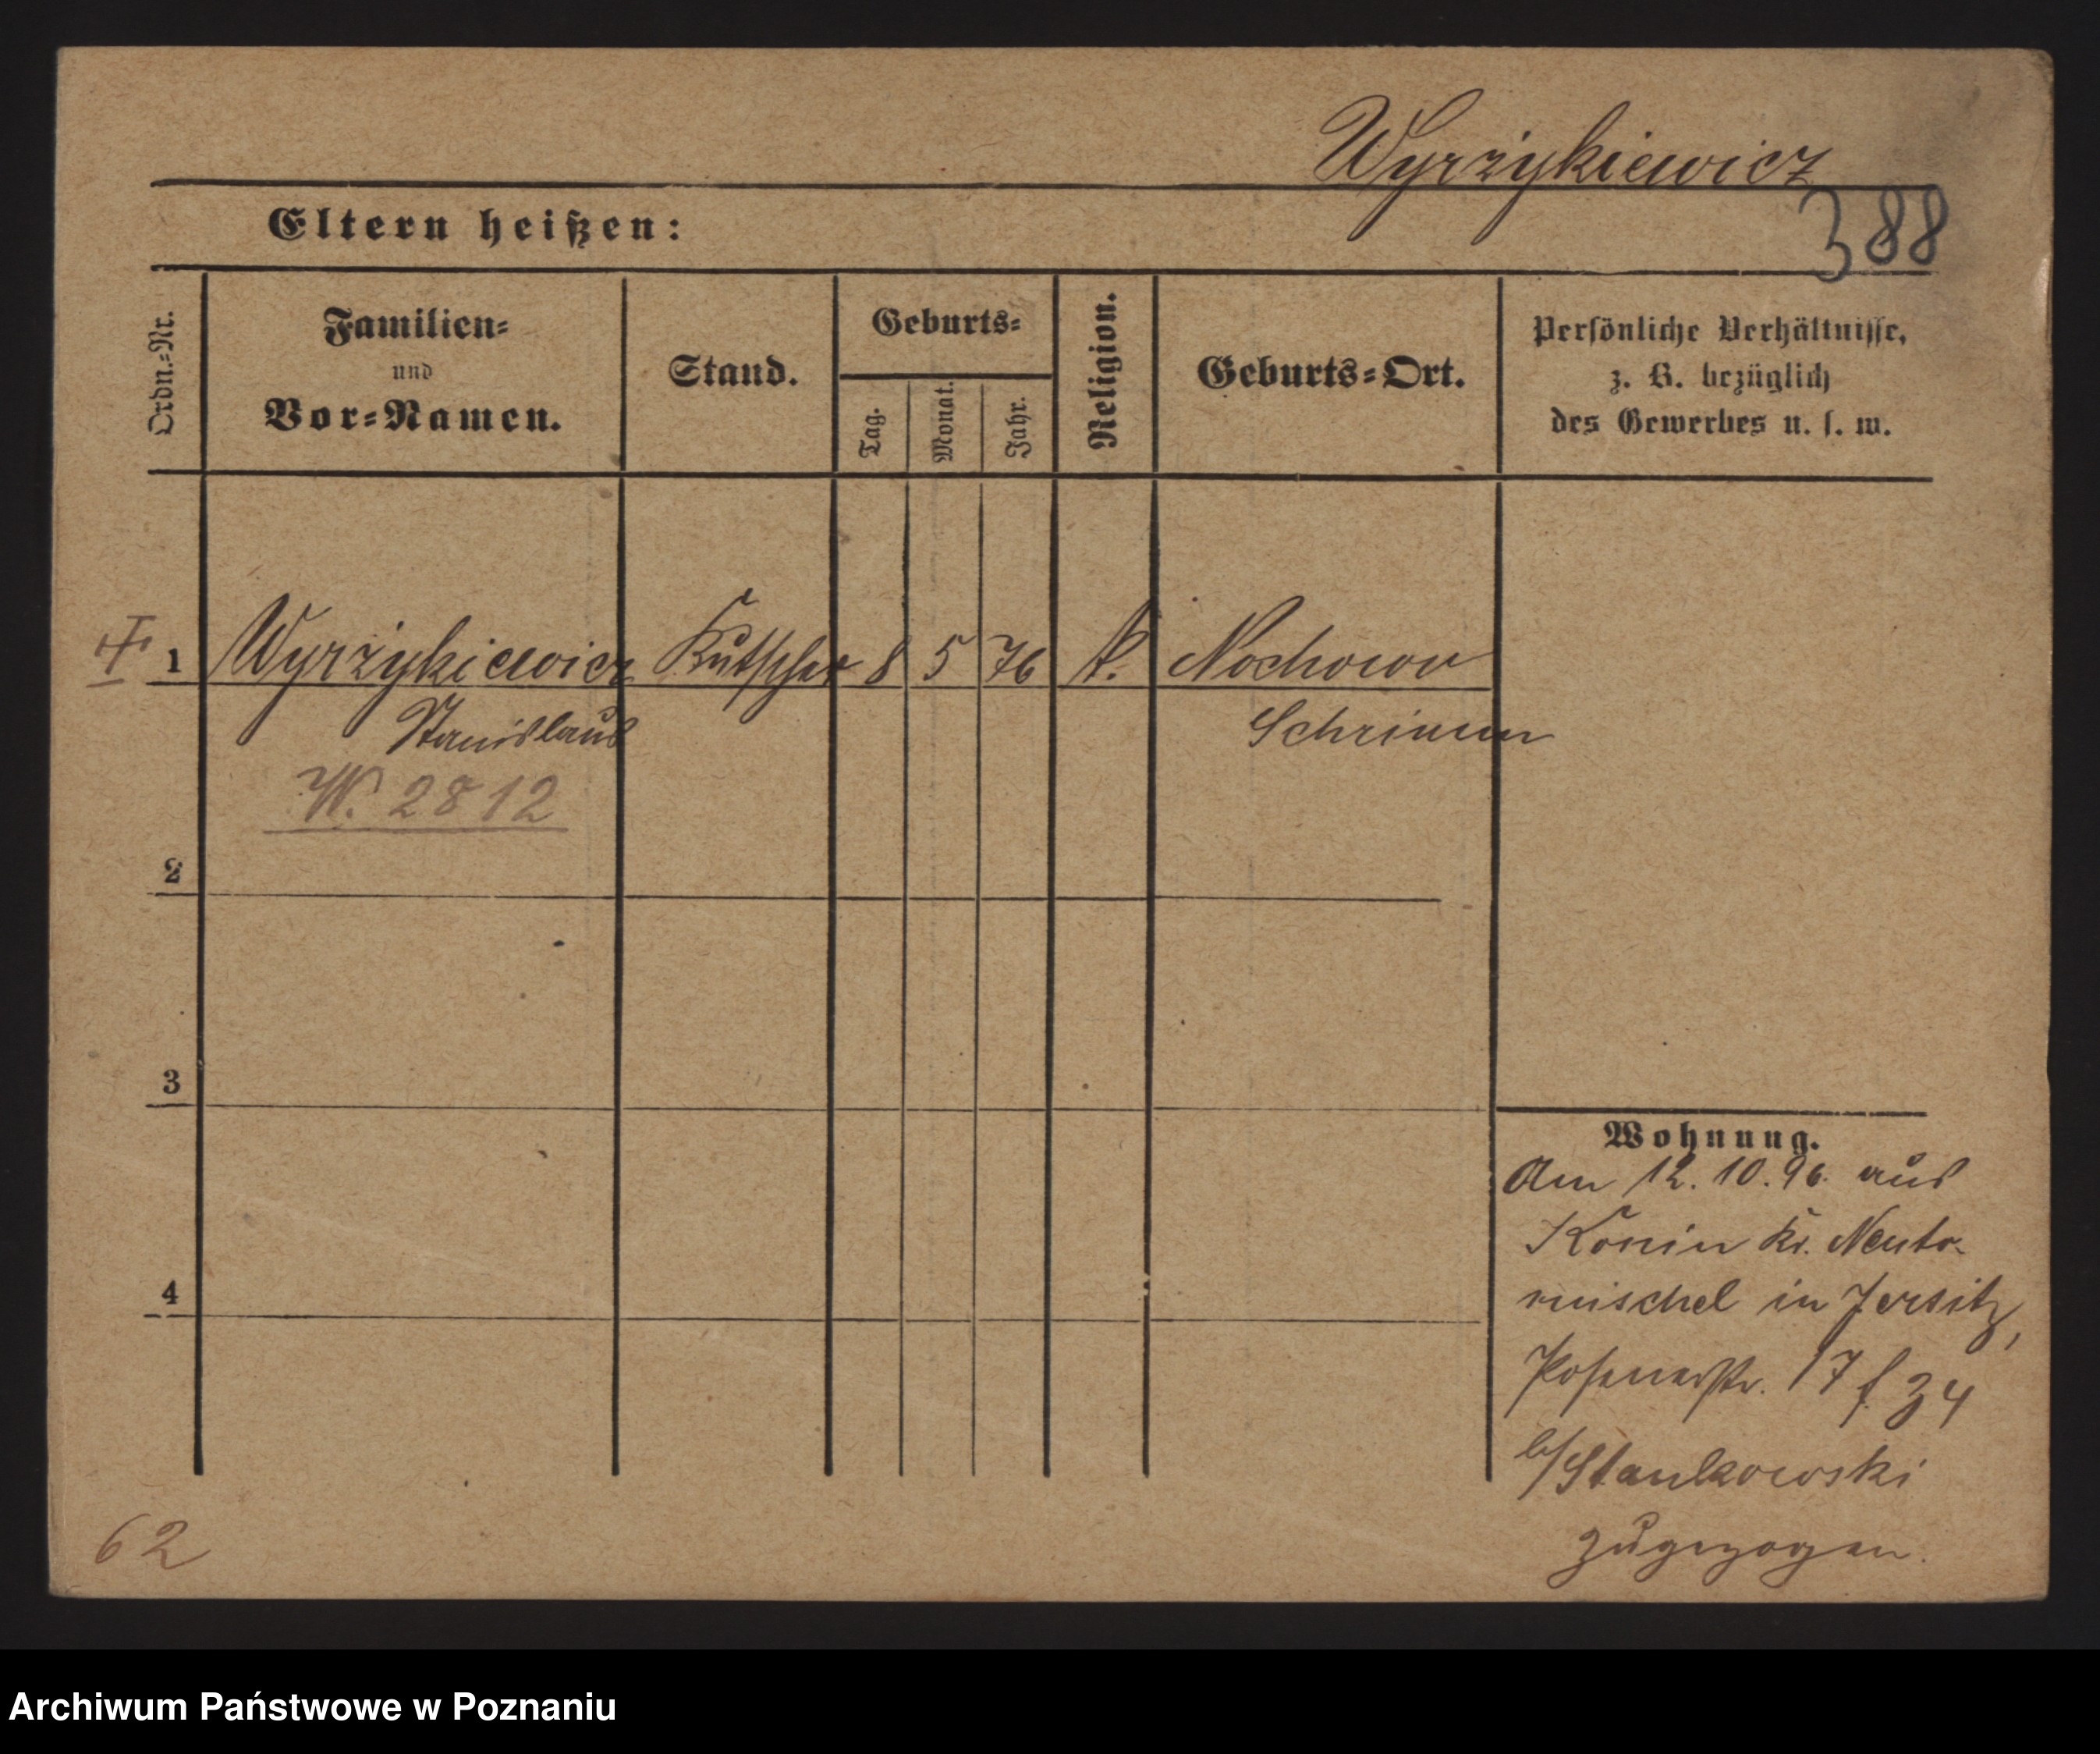 Wyrzykiewicz
388
Eltern heißen:
Ordn.=Nr.
Familien=
und
Vor=Namen.
Stand.
Geburts=
Tag.
Monat.
Jahr.
Religion.
Geburts=Ort.
Persönliche Verhältnisse,
z. B. bezüglich
des Gewerbes u. s. w.
1 Wyrzykiewicz Kutscher 8 5 76 k. Nochowo
Stanislaus Schrimm
W. 2812
2
3
4
Wohnung.
Am 12. 10. 96. aus
Konin Kr. Neuto-
mischel in Jersitz,
Posenerstr. 17 f 34
b/Stankowski
zugezogen.
62
Archiwum Państwowe w Poznaniu